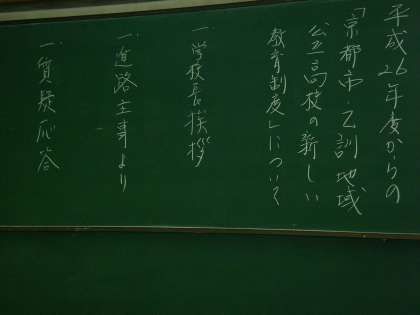 平成26年度からの
「京都市・乙訓地域
公立高校の新しい
教育制度」について
一、学校長挨拶
一、進路主事より
一、質疑応答